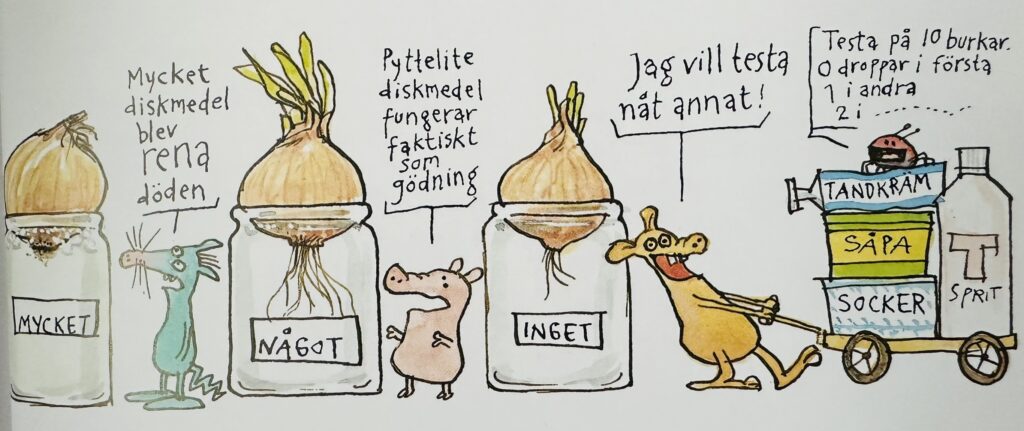 Mycket
diskmedel
blev
rena
döden
Pyttelite
diskmedel
fungerar
faktiskt
som
gödning
Jag vill testa
nåt annat!
Testa på 10 burkar.
0 droppar i första
1 i andra
2 i ........
MYCKET
NÅGOT
INGET
TANDKRÄM
SÅPA
SOCKER
T
SPRIT